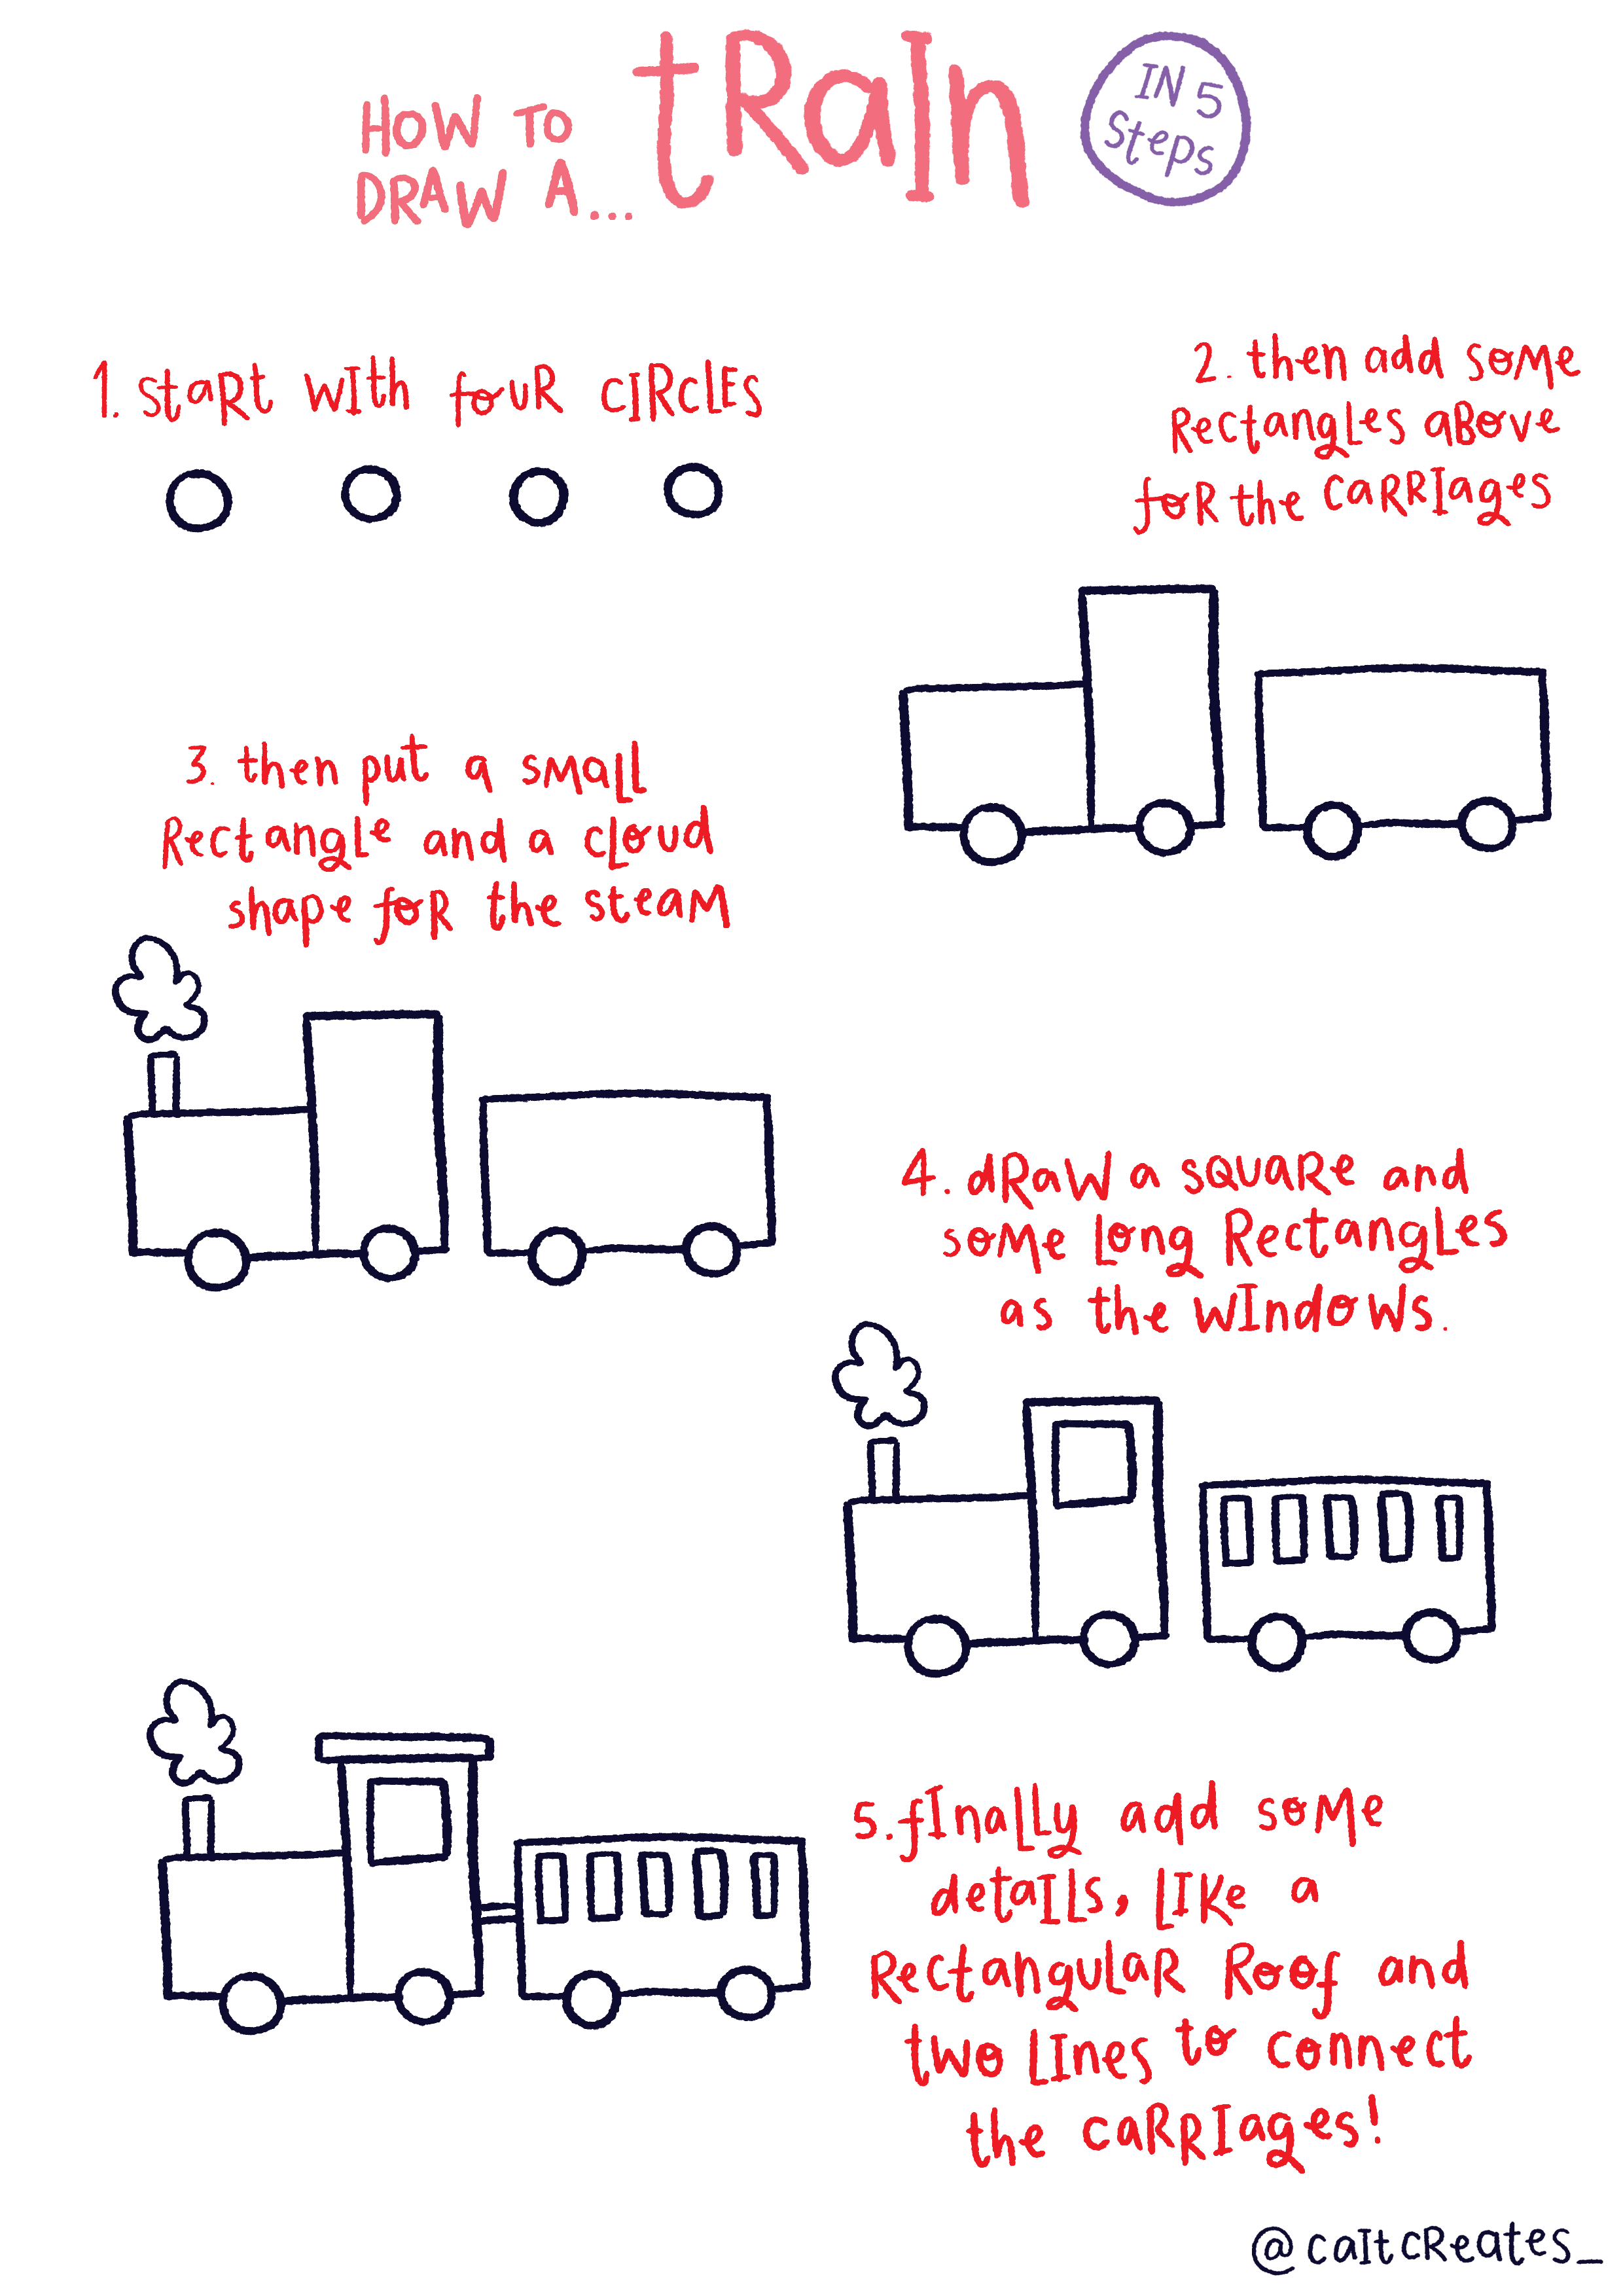 How to
Draw a...
train
In 5
Steps
1. start with four circles
2. then add some
Rectangles above
for the carriages
3. then put a small
Rectangle and a cloud
shape for the steam
4. draw a square and
some long Rectangles
as the windows.
5. finally add some
details, like a
Rectangular Roof and
two lines to connect
the carriages!
@caitcreates_